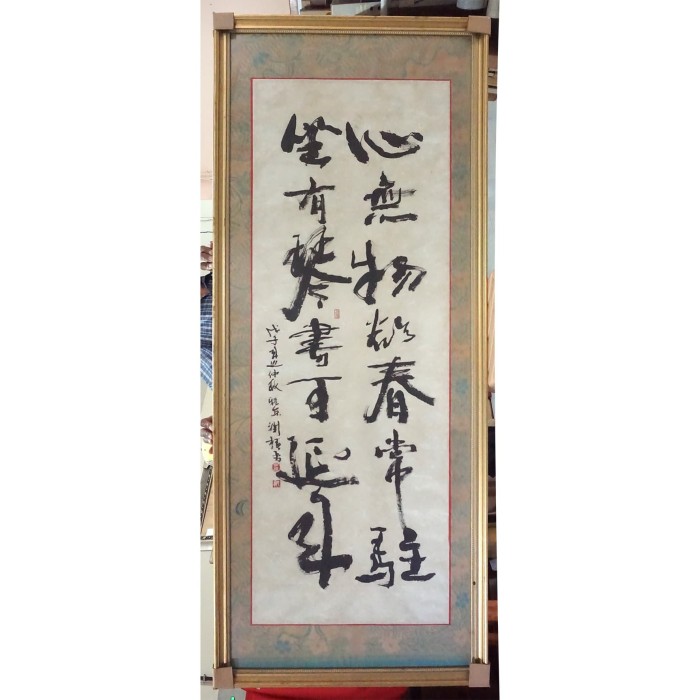 心無物欲春常駐
坐有琴書可延年
戊子 仲秋